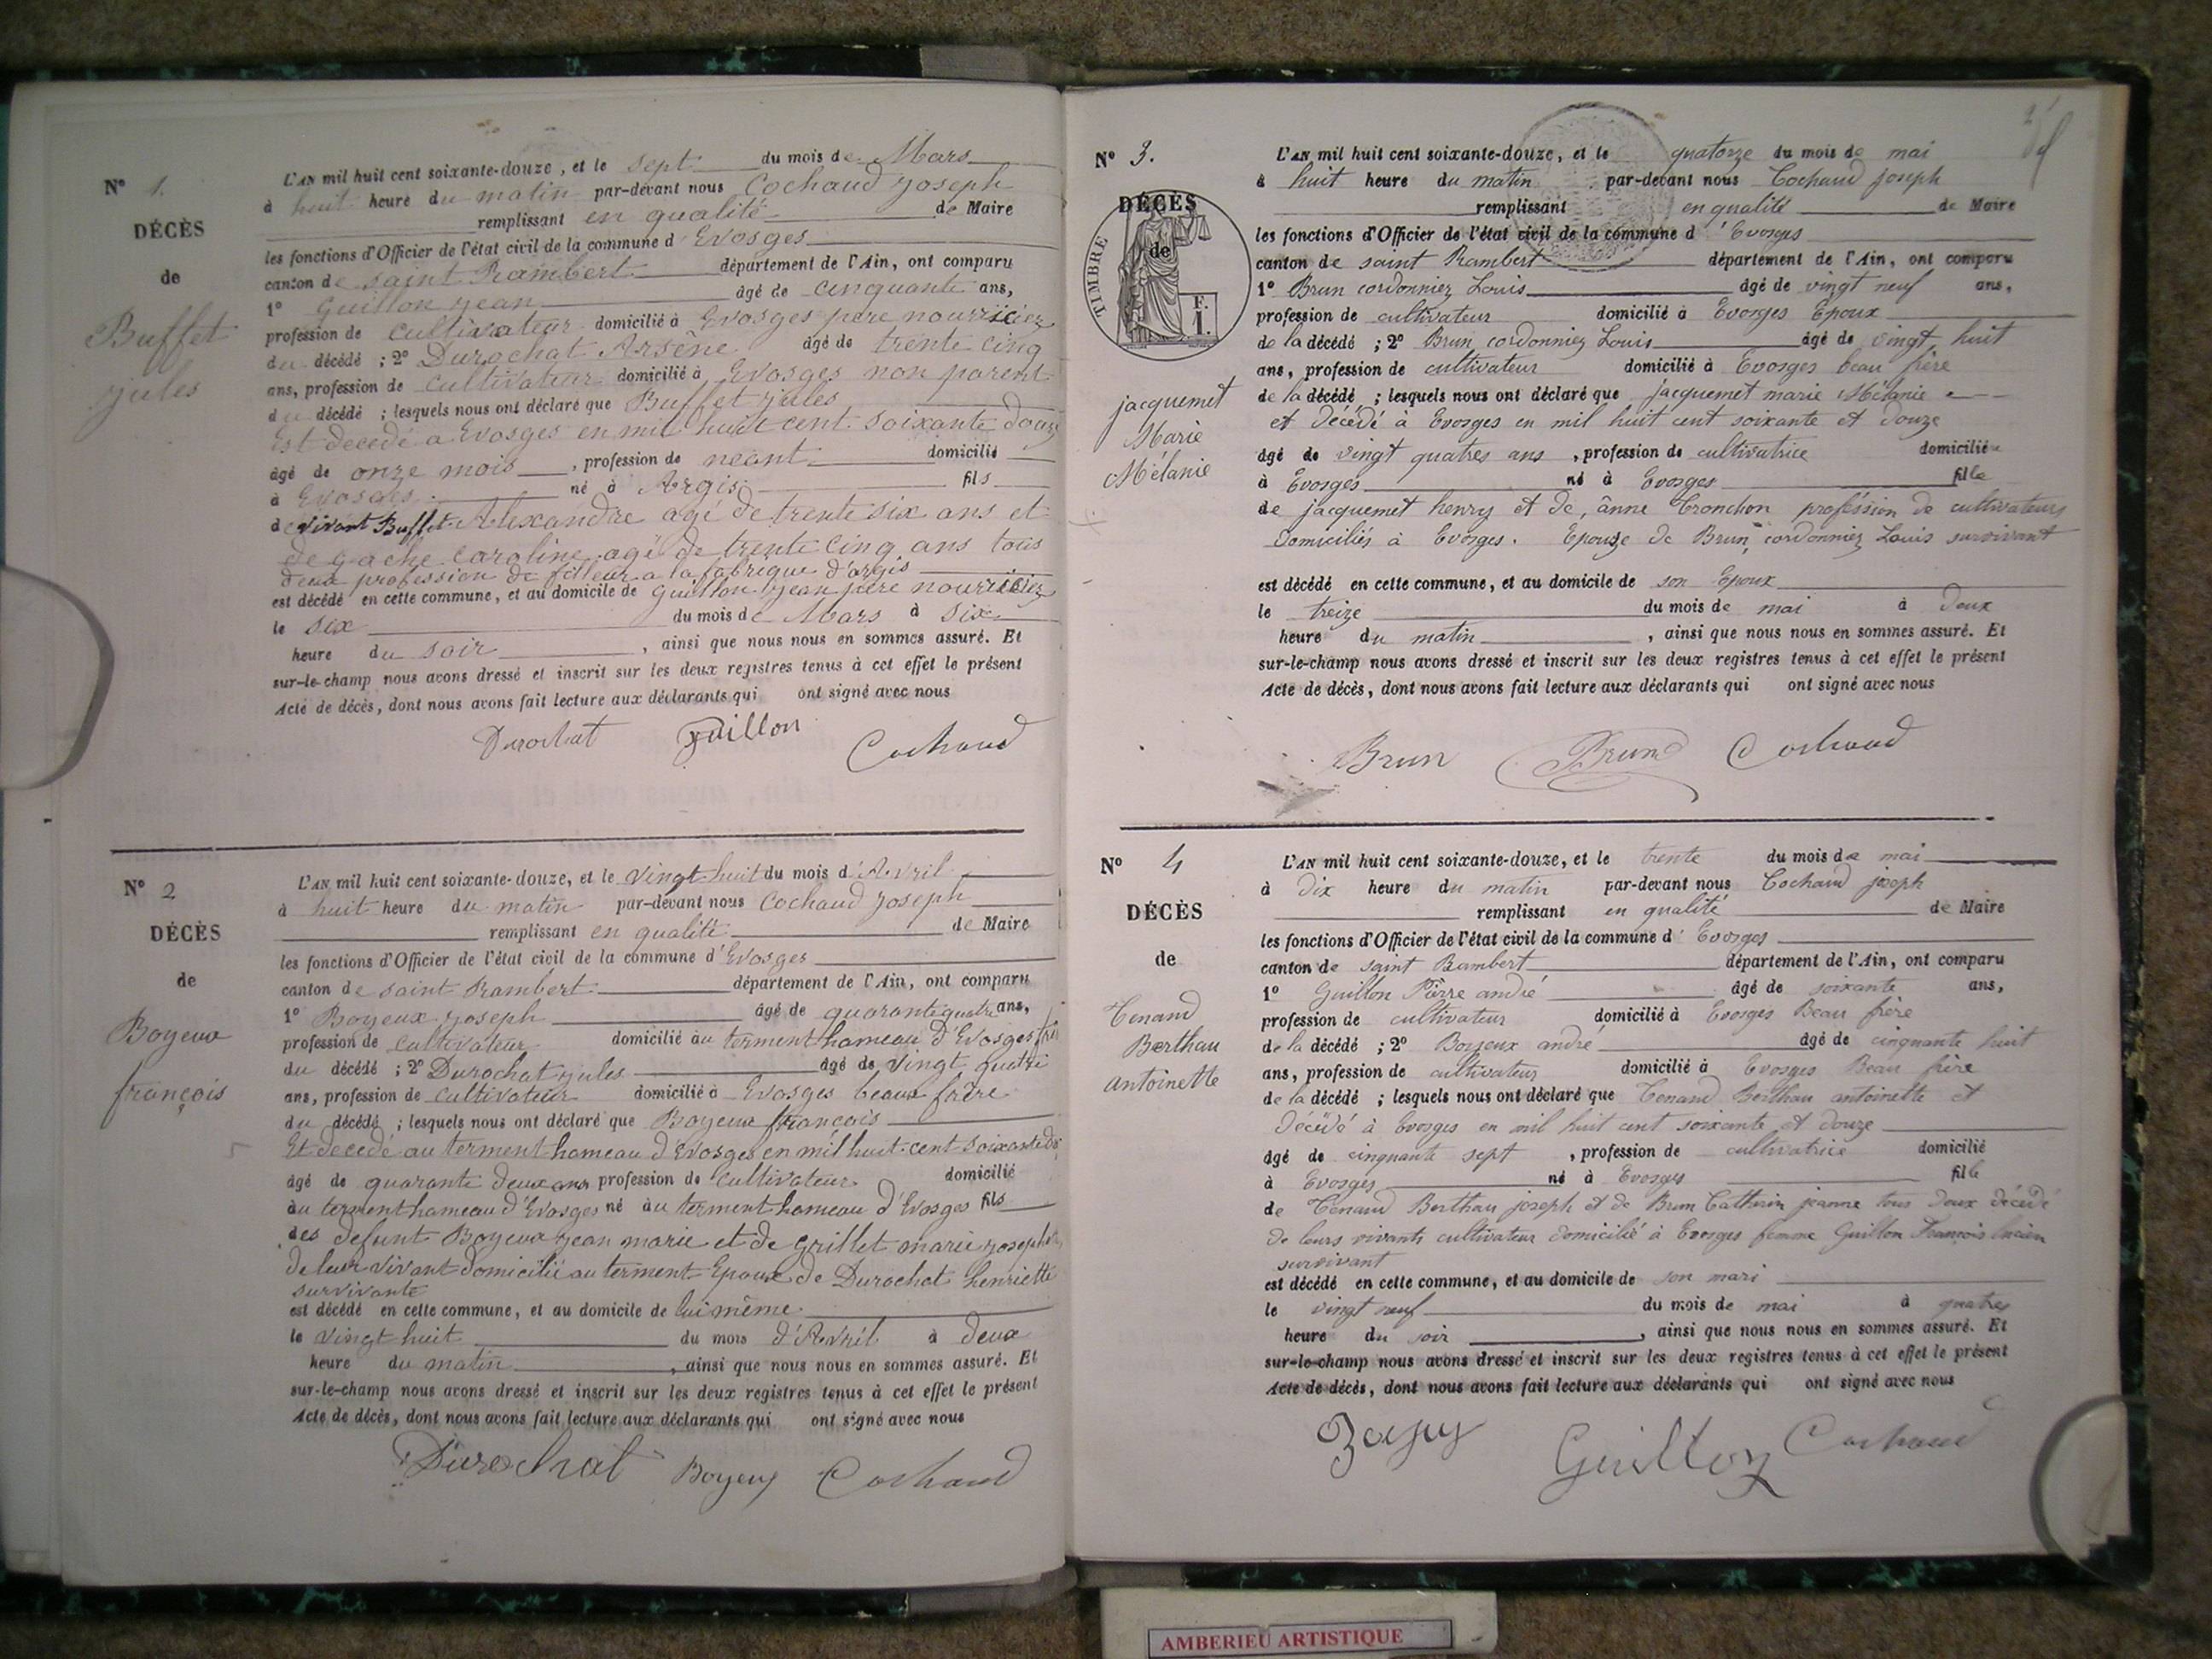 N° 1.
DÉCÈS
de
Buffet
jules
L'AN mil huit cent soixante-douze, et le sept du mois de Mars
à huit heure du matin par-devant nous Cochaud joseph
remplissant en qualité de Maire
les fonctions d'Officier de l'état civil de la commune d'Evosges
canton de saint Rambert département de l'Ain, ont comparu
1° Guillon jean âgé de cinquante ans,
profession de cultivateur domicilié à Evosges père nourricier
du décédé ; 2° Durochat Arsène âgé de trente cinq
ans, profession de cultivateur domicilié à Evosges non parent
du décédé ; lesquels nous ont déclaré que Buffet jules
Est décédé a Evosges en mil huit cent soixante douze
âgé de onze mois, profession de néant domicilié
à Evosges né à Argis fils
de vivant Buffet Alexandre agé de trente six ans et
de gache caroline agé de trente cinq ans tous
deux profession de fileur a la fabrique d'argis
est décédé en cette commune, et au domicile de guillon jean père nourricier
le six du mois de Mars à six
heure du soir, ainsi que nous nous en sommes assuré. Et
sur-le-champ nous avons dressé et inscrit sur les deux registres tenus à cet effet le présent
Acte de décès, dont nous avons fait lecture aux déclarants qui ont signé avec nous
Durochat guillon Cochaud
N° 2
DÉCÈS
de
Boyeux
françois
L'AN mil huit cent soixante-douze, et le vingt huit du mois d'Avril
à huit heure du matin par-devant nous Cochaud joseph
remplissant en qualité de Maire
les fonctions d'Officier de l'état civil de la commune d'Evosges
canton de saint Rambert département de l'Ain, ont comparu
1° Boyeux joseph âgé de quarante quatre ans,
profession de cultivateur domicilié au terment hameau d'Evosges
du décédé ; 2° Durochat jules âgé de vingt quatre
ans, profession de cultivateur domicilié à Evosges beaux frère
du décédé ; lesquels nous ont déclaré que Boyeux françois
Et décédé au terment hameau d'Evosges en mil huit cent soixante
âgé de quarante deux ans profession de cultivateur domicilié
au terment hameau d'Evosges né au terment hameau d'Evosges fils
des defunt Boyeux jean marie et de Grillet marie josephte
de leur vivant domicilié au terment Epoux de Durochat henriette
survivante
est décédé en cette commune, et au domicile de lui même
le vingt huit du mois d'Avril à deux
heure du matin, ainsi que nous nous en sommes assuré. Et
sur-le-champ nous avons dressé et inscrit sur les deux registres tenus à cet effet le présent
Acte de décès, dont nous avons fait lecture aux déclarants qui ont signé avec nous
Durochat Boyeux Cochaud
N° 3.
DÉCÈS
de
TIMBRE
F.
1.
jacquemet
Marie
Mélanie
L'AN mil huit cent soixante-douze, et le quatorze du mois de mai
à huit heure du matin par-devant nous Cochaud joseph
remplissant en qualité de Maire
les fonctions d'Officier de l'état civil de la commune d'Evosges
canton de saint Rambert département de l'Ain, ont comparu
1° Brun cordonnier Louis âgé de vingt neuf ans,
profession de cultivateur domicilié à Evosges Epoux
de la décédé ; 2° Brun cordonnier Louis âgé de vingt huit
ans, profession de cultivateur domicilié à Evosges beau frère
de la décédé ; lesquels nous ont déclaré que jacquemet marie Mélanie
et décédé à Evosges en mil huit cent soixante et douze
âgé de vingt quatres ans, profession de cultivatrice domicilié
à Evosges né à Evosges fille
de jacquemet henry et de anne Tronchon profession de cultivateurs
Domiciliés à Evosges. Epouse de Brun cordonnier Louis survivant
est décédé en cette commune, et au domicile de son Epoux
le treize du mois de mai à deux
heure du matin, ainsi que nous nous en sommes assuré. Et
sur-le-champ nous avons dressé et inscrit sur les deux registres tenus à cet effet le présent
Acte de décès, dont nous avons fait lecture aux déclarants qui ont signé avec nous
Brun Brun Cochaud
N° 4
DÉCÈS
de
Tenand
Berthau
antoinette
L'AN mil huit cent soixante-douze, et le trente du mois de mai
à dix heure du matin par-devant nous Cochaud joseph
remplissant en qualité de Maire
les fonctions d'Officier de l'état civil de la commune d'Evosges
canton de saint Rambert département de l'Ain, ont comparu
1° Guillon Pierre andré âgé de soixante ans,
profession de cultivateur domicilié à Evosges Beau frère
de la décédé ; 2° Boyeux andré âgé de cinquante huit
ans, profession de cultivateur domicilié à Evosges Beau frère
de la décédé ; lesquels nous ont déclaré que Tenand Berthau antoinette et
décédé à Evosges en mil huit cent soixante et douze
âgé de cinquante sept, profession de cultivatrice domicilié
à Evosges né à Evosges fille
de Tenand Berthau joseph et de Brun Catherin jeanne tous deux décédé
de leurs vivants cultivateur domicilié à Evosges femme Guillon François
survivant
est décédé en cette commune, et au domicile de son mari
le vingt neuf du mois de mai à quatres
heure du soir, ainsi que nous nous en sommes assuré. Et
sur-le-champ nous avons dressé et inscrit sur les deux registres tenus à cet effet le présent
Acte de décès, dont nous avons fait lecture aux déclarants qui ont signé avec nous
Guillon Cochaud
AMBERIEU ARTISTIQUE